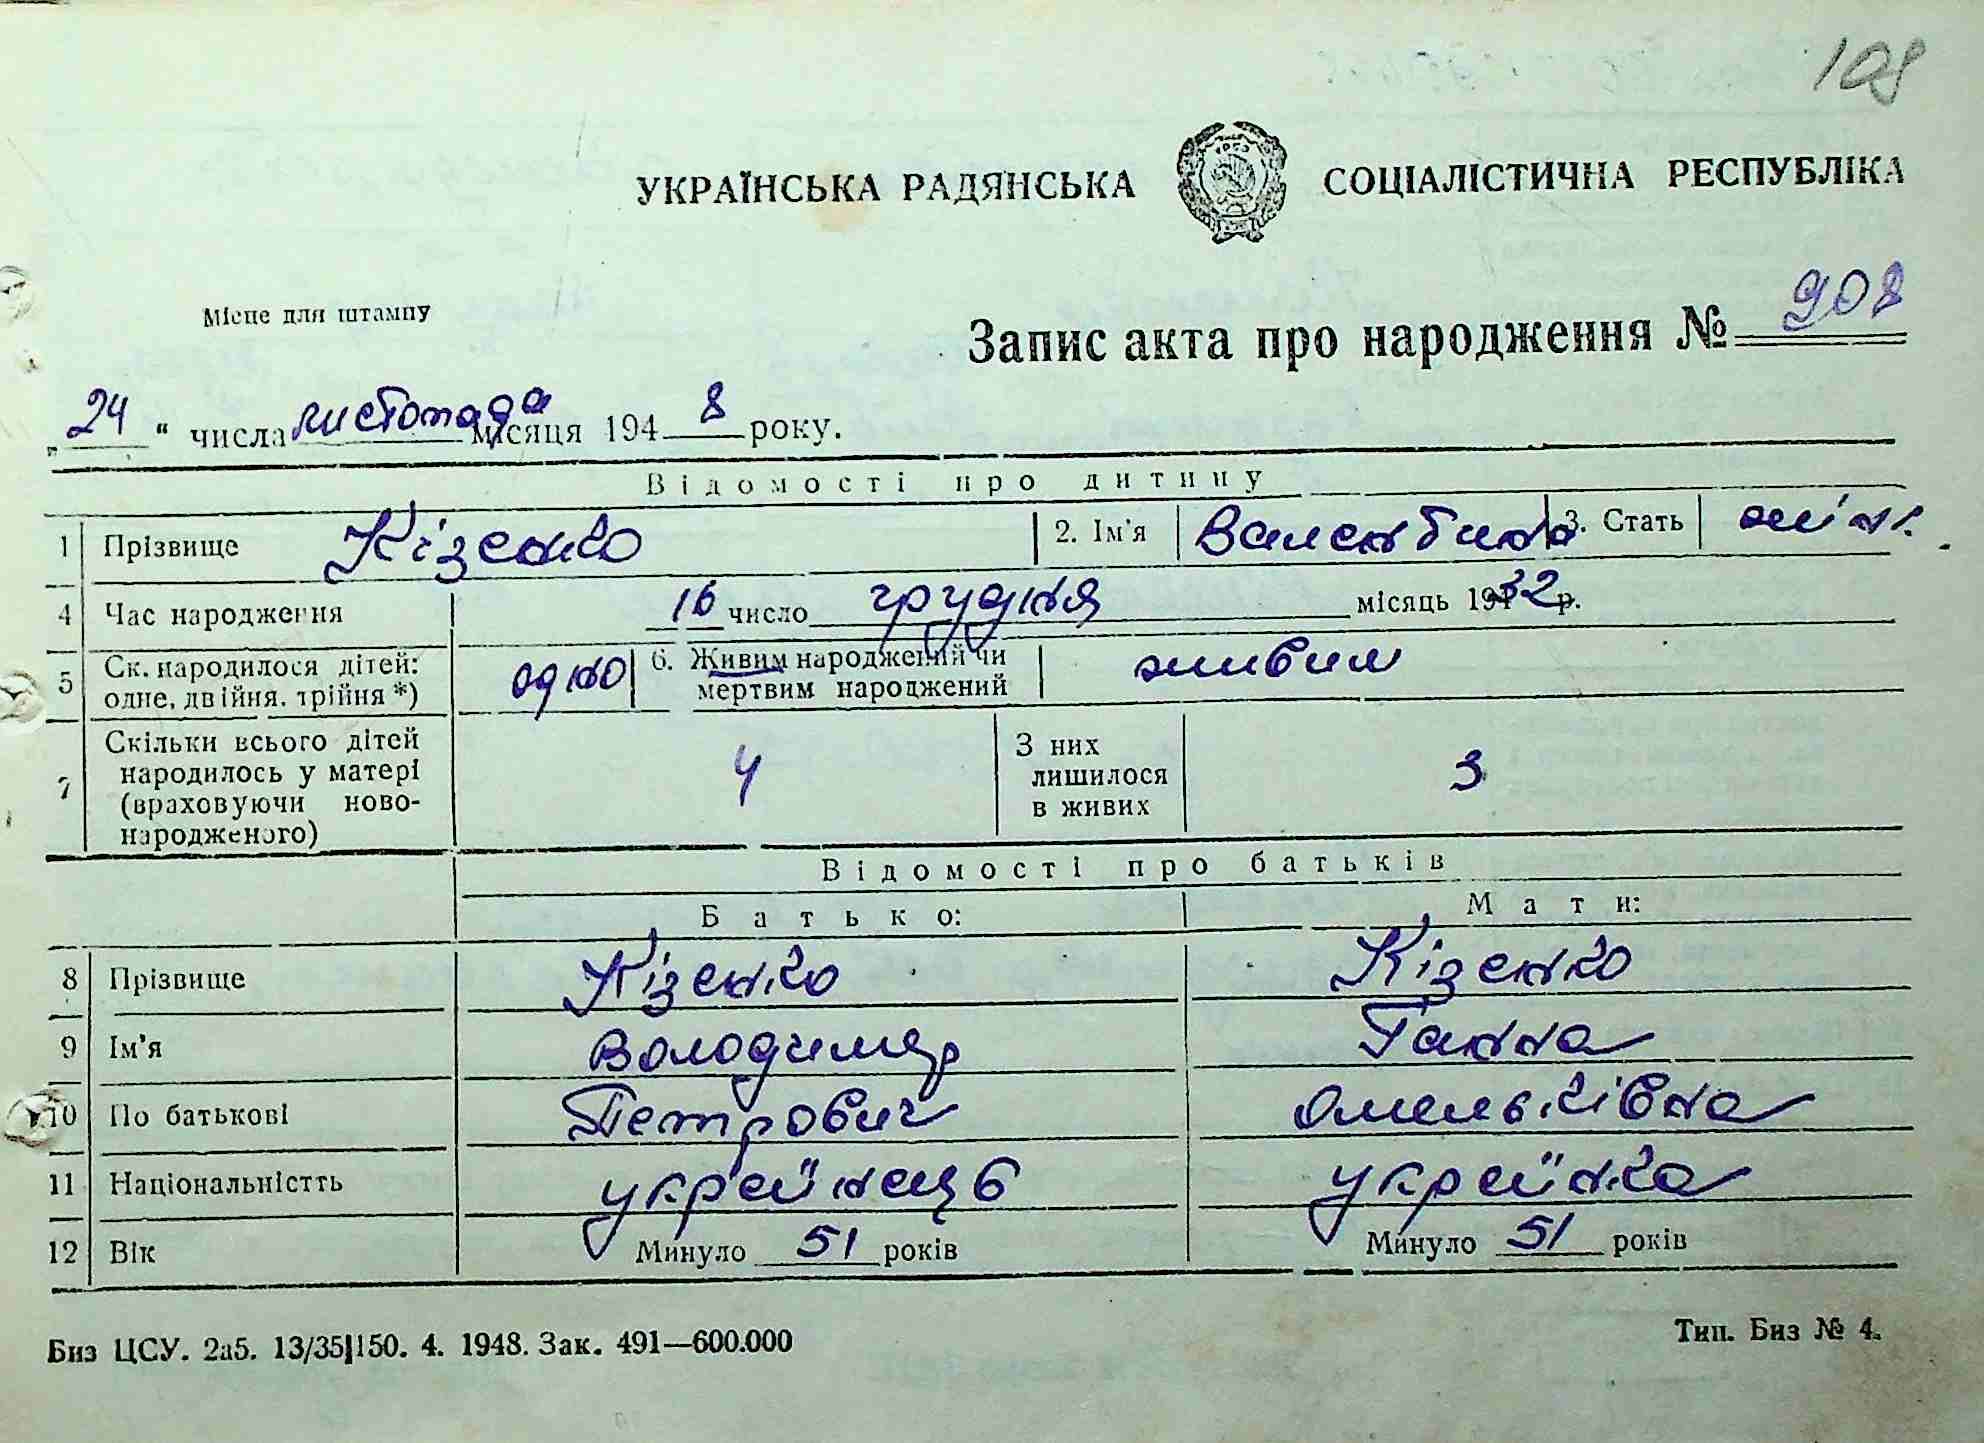 108
УКРАЇНСЬКА РАДЯНСЬКА СОЦІАЛІСТИЧНА РЕСПУБЛІКА
Місце для штампу
Запис акта про народження № 908
„24" числа листопада місяця 1948 року.
Відомості про дитину
1 Прізвище Кізенко 2. Ім'я Валентина 3. Стать жін.
4 Час народження 16 число грудня місяць 1932 р.
5 Ск. народилося дітей: одне, двійня, трійня *) одно 6. Живим народжений чи мертвим народжений живим
7 Скільки всього дітей народилось у матері (враховуючи ново-народженого) 4 З них лишилося в живих 3
Відомості про батьків
Батько: Мати:
8 Прізвище Кізенко Кізенко
9 Ім'я Володимир Ганна
10 По батькові Петрович Омельківна
11 Національністть українець українка
12 Вік Минуло 51 років Минуло 51 років
Биз ЦСУ. 2а5. 13/35|150. 4. 1948. Зак. 491—600.000 Тип. Биз № 4.